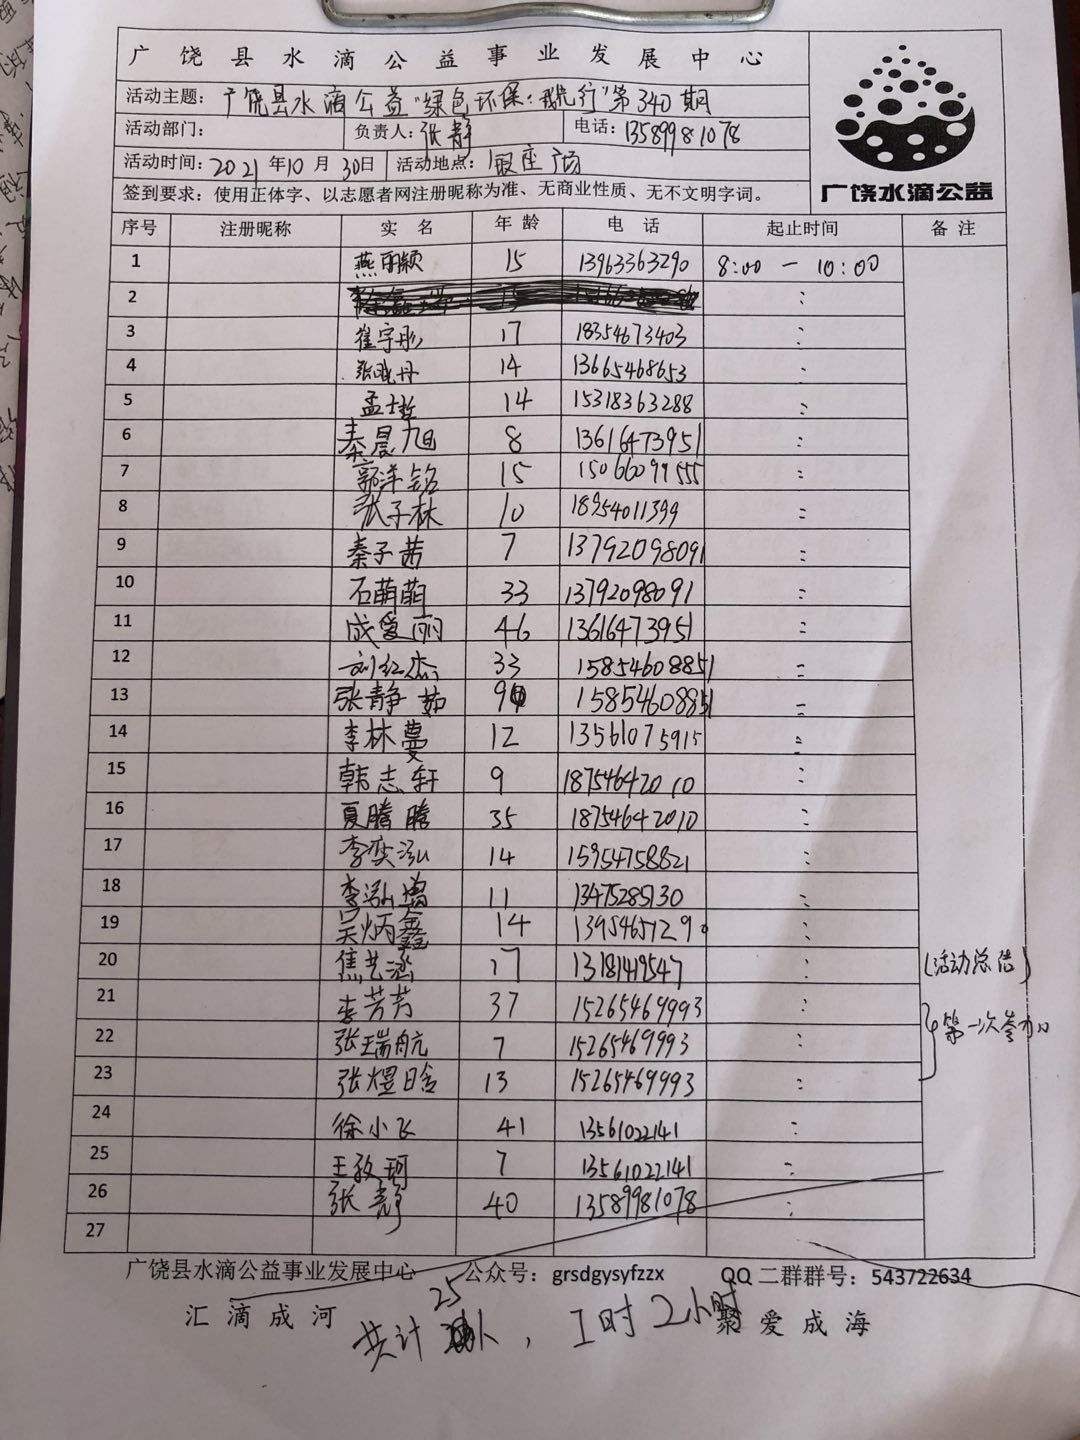 广饶县水滴公益事业发展中心
活动主题：广饶县水滴公益"绿色环保：我先行"第340期
活动部门： 负责人：张静 电话：13589981078
活动时间：2021年10月30日 活动地点：银座广场
签到要求：使用正体字、以志愿者网注册昵称为准、无商业性质、无不文明字词。
广饶水滴公益
序号 注册昵称 实名 年龄 电话 起止时间 备注
1 燕丽颖 15 13963363290 8:00 — 10:00
2
3 崔宇彤 17 18354673403
4 张晓丹 14 13665468653
5 孟士哲 14 15318363288
6 秦晨旭 8 13616473951
7 郭洋铭 15 15066099555
8 张子林 10 18954011399
9 秦子茜 7 13792098091
10 石萌萌 33 13792098091
11 成爱丽 46 13616473951
12 刘红杰 33 15854608851
13 张静茹 9 15854608851
14 李林蔓 12 13561075915
15 韩志轩 9 18754642010
16 夏腾腾 35 18754642010
17 李奕泓 14 15954758821
18 李泓 11 13475285130
19 吴炳鑫 14 13954651290
20 焦艺涵 17 13181419547 (活动总结)
21 李芳芳 37 15265469993
22 张瑞航 7 15265469993 第一次参加
23 张煜晗 13 15265469993
24 徐小飞 41 13561022141
25 王孜珂 7 13561022141
26 张静 40 13589981078
27
广饶县水滴公益事业发展中心 公众号：grsdgysyfzzx QQ二群群号：543722634
汇滴成河 聚爱成海
共计25人，工时2小时